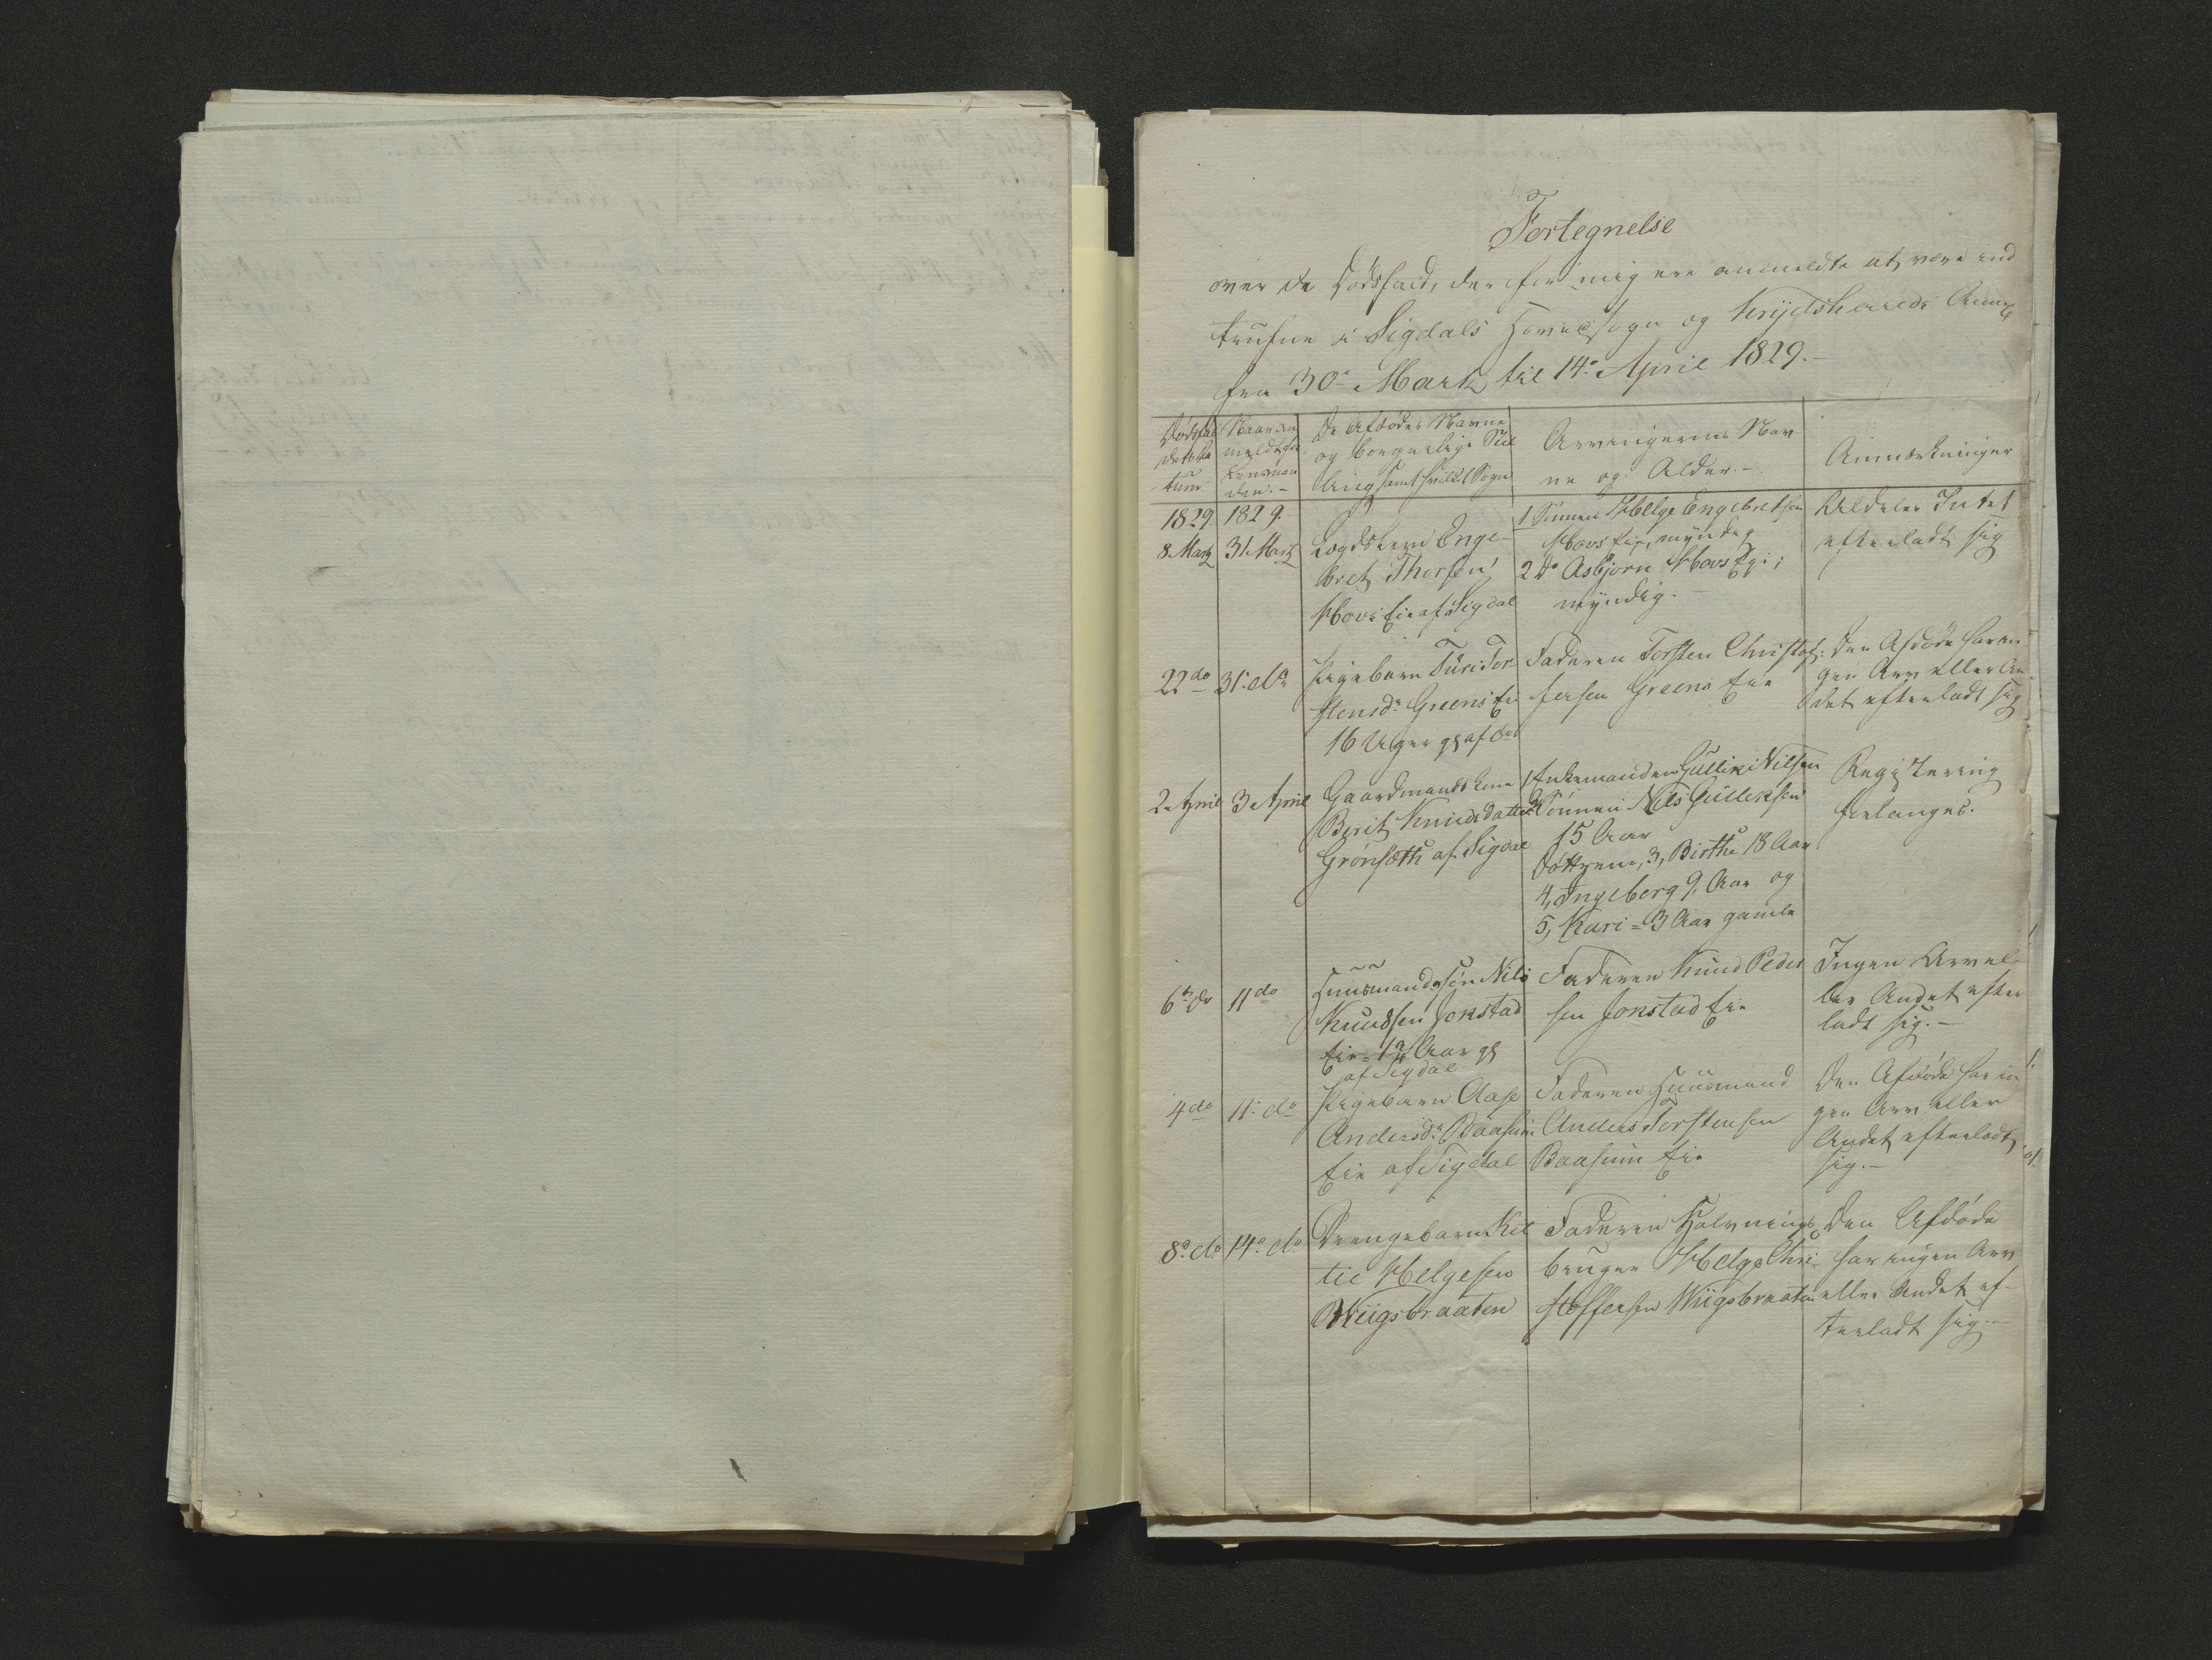 Fortegnelse
over de Dödsfald, der for mig ere anmeldte at være ind
trufne i Sigdals Hovedsogn og Krydsheareds Annex
fra 30e Martz til 14e April 1829.-
Dödsfal
dets Da
tum
Naar an
meldt for
Lensman
den.-
De Afdödes Navne
og borgerlige Stil
ling samt hvilket Sogn
Arvingernes Nav
ne og Alder.-
Anmærkninger
1829
8 Martz
1829.
31 Martz
Logdskarl Enge-
bret Thorsen
Hovs Eie af Sigdal
1 Sönnen Helge Engebretsen
Hovs Eie, myndig
2 do Asbjörn Hovs Eje;
myndig.-
Aldeles Intet
efterladt sig
22 do
31 do
Pigebarn Turi Tor
stensdr Greens Ei
16 Uger gl af do
Faderen Torsten Christof-
fersen Greens Eie
Den Afdöde har in
gen Arv eller An
det efterladt sig
2 April
3 April
Gaardmandskone
Berit Knudsdatter
Grönsæth af Sigdal
1 Enkemanden Gullik Nilsen
2 Sönnen Nils Gulleksen
15 Aar
Döttrene, 3, Birthe 18 Aar
4, Ingeborg 9 Aar og
5, Kari = 3 Aar gamle
Registering
forlanges.
6te do
11 do
Huusmandssön Nils
Knudsen Jonstad
Eie = 1 3/4 Aar gl
af Sigdal
Faderen Knud Peder
sen Jonstad Eie
Ingen Arv el-
ler Andet efter
ladt sig.-
4 do
11 do
Pigebarn Aase
Andersdr Baasum
Eie af Sigdal
Faderen Huusmand
Anders Torstensen
Baasum Eie
Den Afdöde har in
gen Arv eller
Andet efterladt
sig.-
8de do
14e do
Drengebarn Kit
til Helgesen
Wiigsbraaten
Faderen Halvnings
bruger Helge Chri-
stoffersen Wiigsbraaten
Den Afdöde
har ingen Arv
eller Andet ef-
terladt sig.-